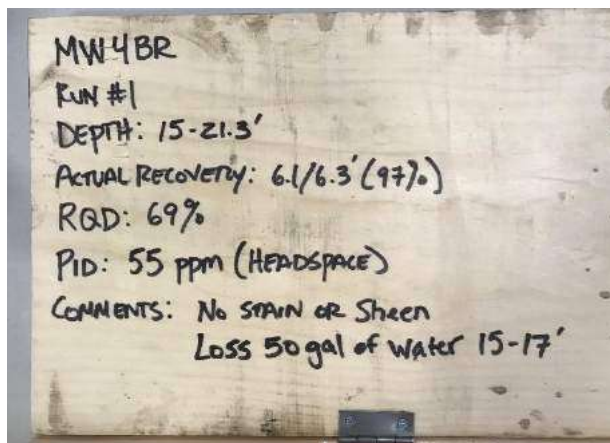 MW4BR
RUN #1
DEPTH: 15-21.3'
ACTUAL RECOVERY: 6.1/6.3' (97%)
RQD: 69%
PID: 55 ppm (HEADSPACE)
COMMENTS: No STAIN OR Sheen
Loss 50 gal of Water 15-17'